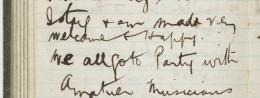 I stay & am made very
welcome & Happy.
We all go to Party with
Amateur Musicians